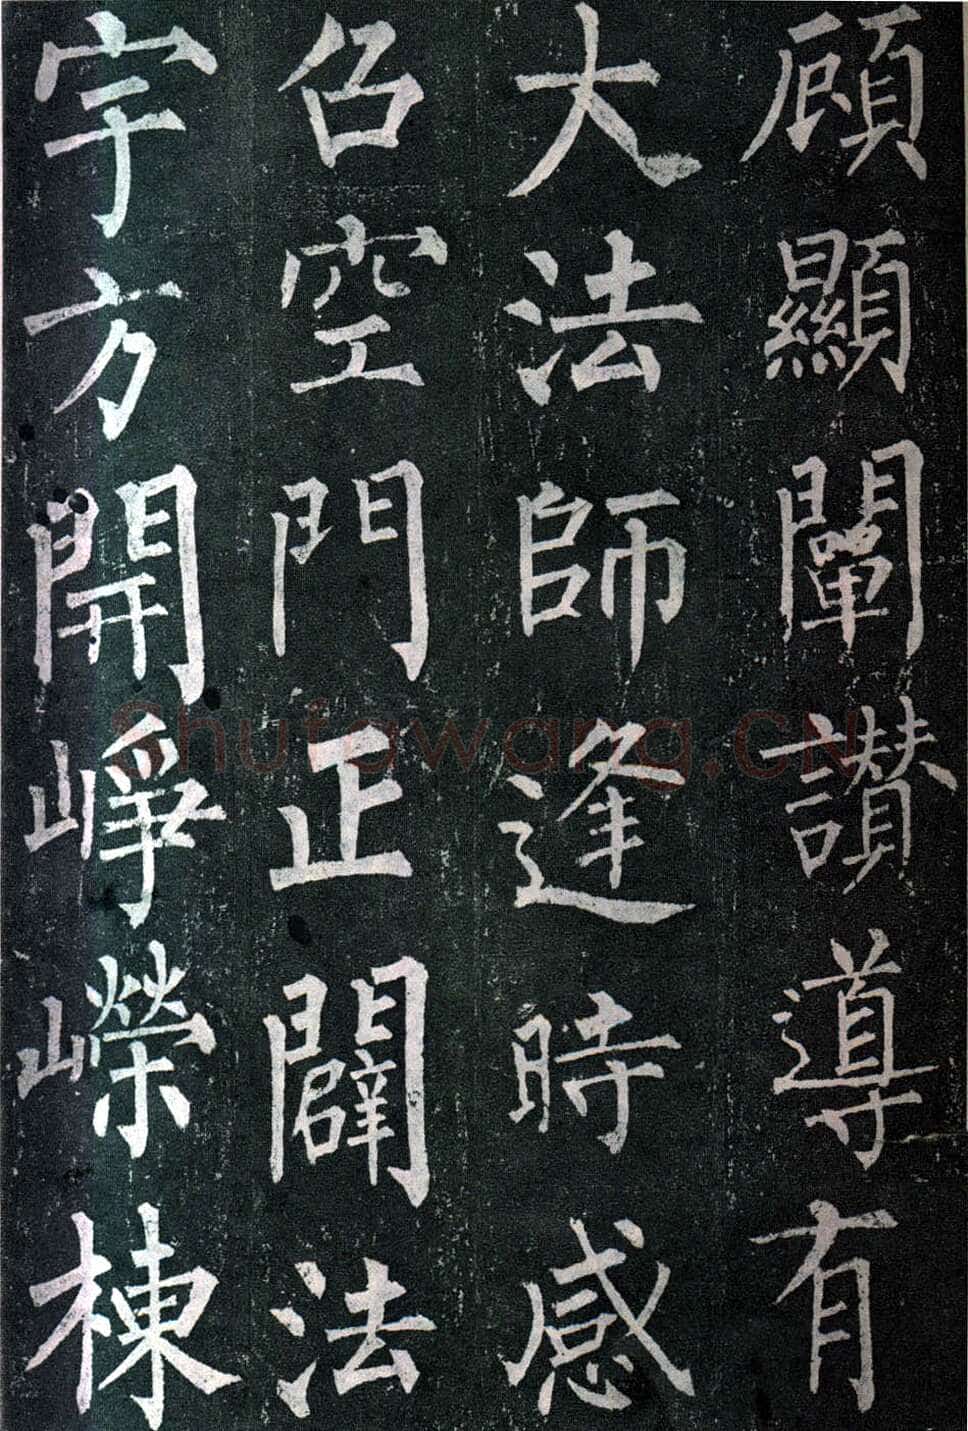 顧顯闡讃導有
大法師逢時感
召空門正闢法
宇方開崢嶸棟
Shufawang.CN